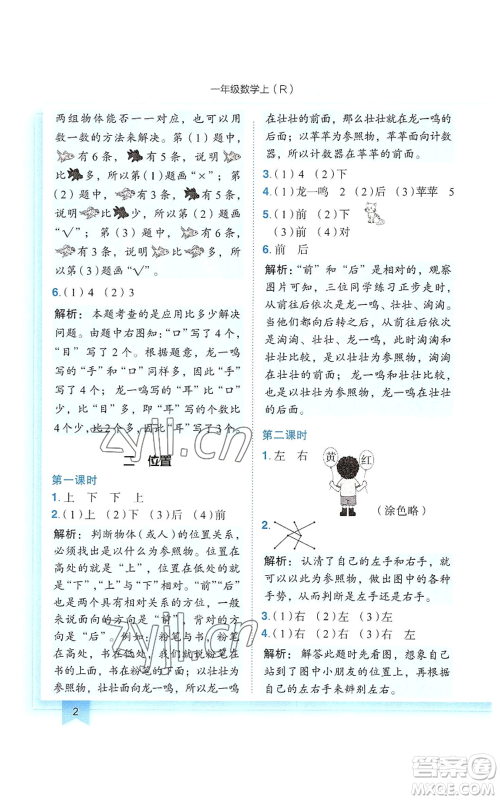 一年级数学上（R）
两组物体能否一一对应，也可以用
数一数的方法来解决。第（1）题中，
有6条，有5条，说明比
多，所以第（1）题画“×”；第（2）
题中，有3条，有5条，
说明比多，所以第（2）题画
“√”；第（3）题中，有6条，
有5条，说明比多，所以
第（3）题画“√”。
6.（1）4 （2）3
解析：本题考查的是应用比多少解决
问题。由题中右图知：“口”写了4个，
“目”写了2个。根据题意，龙一鸣
写的“手”和“口”同样多，因此“手”
写了4个；龙一鸣写的“耳”比“口”
少，比“目”多，即“耳”写的个数比
4少，比2多，因此“耳”写了3个。
二 位置
第一课时
1.上 下 下 上
2.（1）上 （2）下 （3）后 （4）前
解析：判断物体（或人）的位置关系，
必须找出是以什么为参照物。位置在
高处的就是“上”，与“上”相反，在
低处的就是“下”，“上”与“下”是根
据位置的高低来确定的。“前”“后”
一般来说面向的方向是“前”，背对的
方向是“后”。例如：粉笔与书，粉笔
在书的下面，书在粉笔的上面；龙一
鸣与壮壮，壮壮面向龙一鸣，龙一鸣
在壮壮的前面，壮壮在龙一鸣的
后面；以苹苹为参照物，苹苹面向计数
器，计数器在苹苹的前面。
3.（1）4 （2）下
4.（1）龙一鸣 （2）后 （3）苹苹 5
5.（1）前 （2）下
（3）前 （4）对
6.前 后
解析：“前”和“后”是相对的，观察
图片可知，三位同学练习正步走时，
从前往后依次是龙一鸣、壮壮、淘淘。
当他们都向后转之后，从前往后依次
是淘淘、壮壮、龙一鸣，此时淘淘和
壮壮比较，也是以壮壮为参照物，淘
淘在壮壮的前面；龙一鸣和壮壮比较，
也是以壮壮为参照物，龙一鸣在壮壮
的后面。
第二课时
1.左 右 黄 红
（涂色略）
2.
解析：认清了自己的左手和右手，就
可以以此为依据，来判断图中出现的
各种手势，从而判断是左手还是右手。
3.（1）右 （2）左 （3）左
4.（1）右 （2）左 （3）右 左
解析：解答此题可以看图，想象自己
站到了图中小朋友的位置上，然后根
据自己的左右手来辨别左右。
2
zyjl.cn
zyjl.cn
答案圈
MXQE.COM